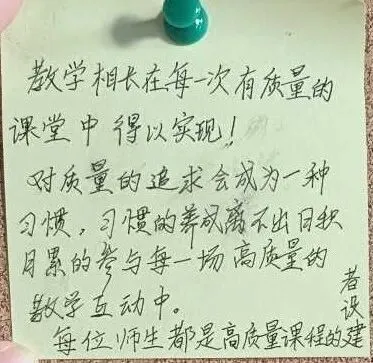 教学相长在每一次有质量的
课堂中得以实现！
对质量的追求会成为一种
习惯，习惯的养成离不出日积
月累的参与每一场高质量的
教学互动中。
每位师生都是高质量课程的建
设
者